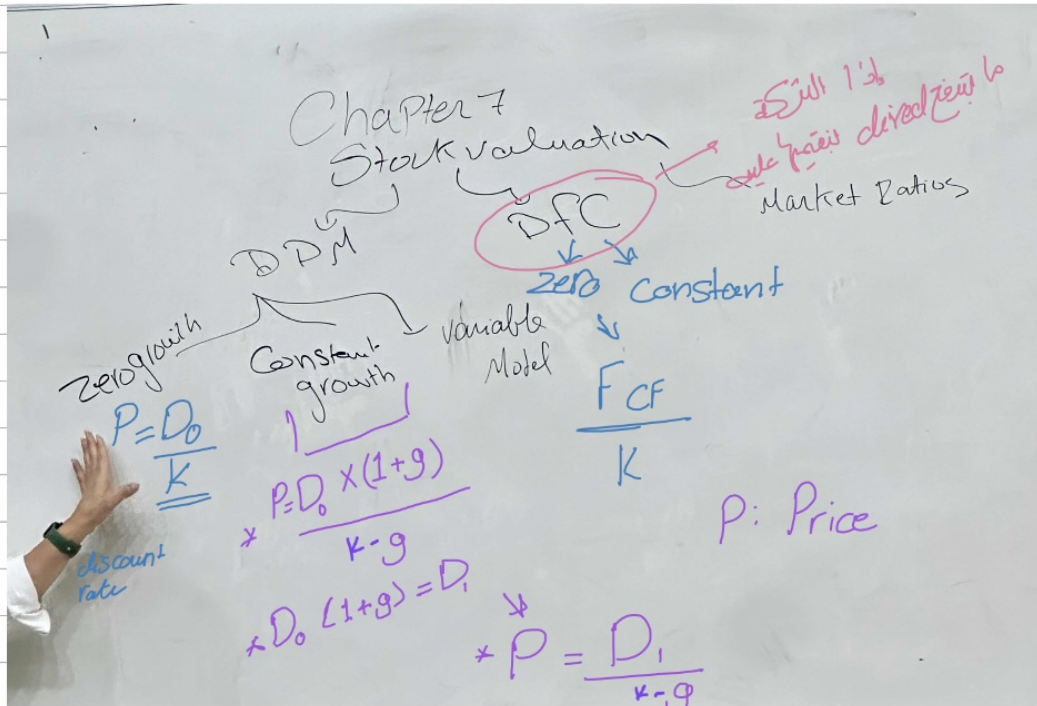 Chapter 7
Stock valuation
إذا الشركة
ما بتدفع divedend
Market Ratios
DDM
DFC
zero Constant
zero growth
Constant growth
variable Model
P=D₀/K
discount rate
P=D₀×(1+g)/K-g
FCF/K
P: Price
D₀(1+g)=D₁
P=D₁/K-g